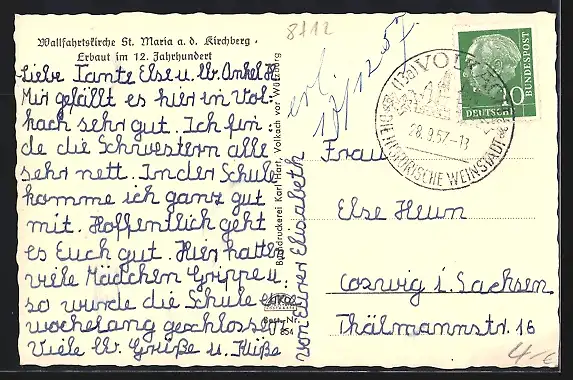 8/12
Wallfahrtskirche St. Maria a. d. Kirchberg.
Erbaut im 12. Jahrhundert
Liebe Tante Else u. lb. Onkel
Mir gefällt es hier in Vol-
kach sehr gut. Ich fin-
de die Schwestern alle
sehr nett. In der Schule
komme ich ganz gut
mit. Hoffentlich geht
es Euch gut. Hier hatten
viele Mädchen Grippe u.
so wurde die Schule
wochelang geschlossen
Viele lb. Grüße u. Küße
von Eurer Elisabeth
Buchdruckerei Karl Hart, Volkach vor Würzburg
Best.-Nr.
854
17/12 57.
(13a) VOLKACH
28.9.57-13
DIE HISTORISCHE WEINSTADT
DEUTSCHE BUNDESPOST
10
Frau
Else Heun
Coswig i. Sachsen
Thälmannstr. 16